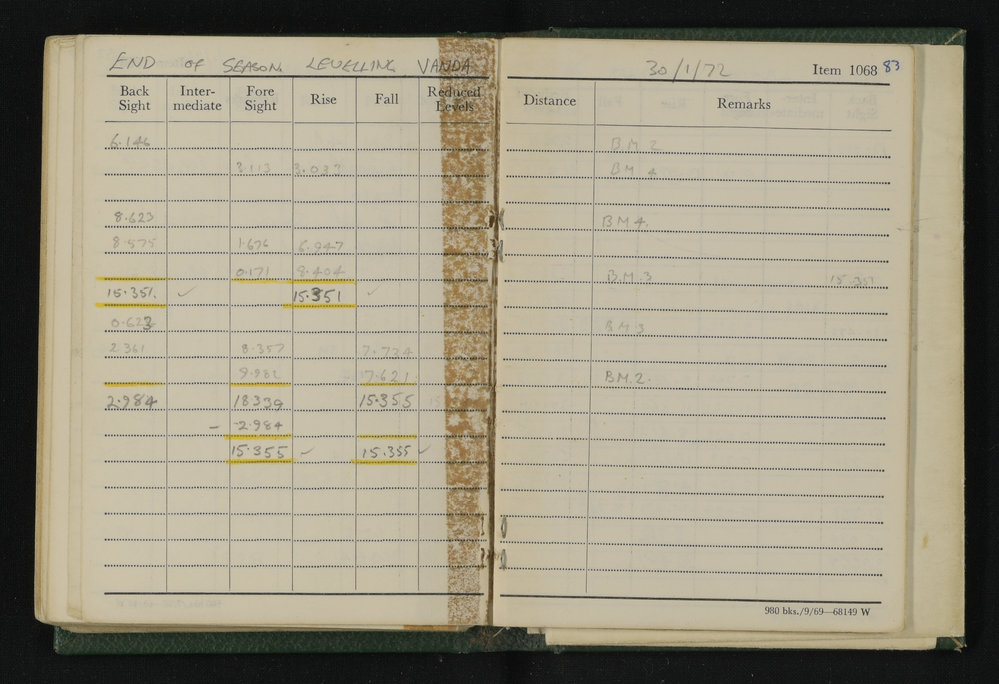 END OF SEASON LEVELLING VANDA
30/1/72 Item 1068 83
Back Sight Inter-mediate Fore Sight Rise Fall Reduced Levels Distance Remarks
6.146 B.M. 2
3.113 3.033 BM 4
8.623 B.M 4.
8.575 1.676 6.947
0.171 8.404 B.M. 3 15.351
15.351 ✓ 15.351 ✓
0.623 B M 3
2.361 8.357 7.734
9.982 7.621 B.M.2.
2.984 18339 15.355
- 2.984
15.355 ✓ 15.355 ✓
980 bks./9/69—68149 W